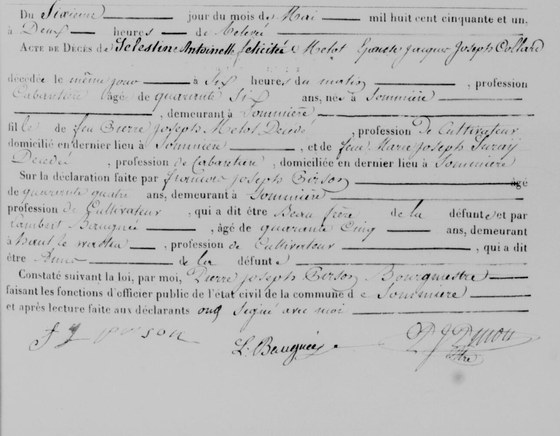 Du Sixieme jour du mois de Mai mil huit cent cinquante et un,
à Deux heures de Relevée
ACTE DE DÉCÈS de Celestine Antoinette félicité Melot Epouse Jacques Joseph Collard
décédée le même jour à Six heures du matin, profession
Cabaretière âgé de quarante Six ans, née à Sommière
, demeurant à Sommière
fille de feu Pierre Joseph Melot Décédé, profession De Cultivateur
domicilié en dernier lieu à Sommière, et de feue Marie Joseph
Décédée, profession de Cabaretière, domiciliée en dernier lieu à Sommière
Sur la déclaration faite par François Joseph Person âgé
de quarante quatre ans, demeurant à Sommière
profession de Cultivateur, qui a dit être Beau frère de la défunte et par
Lambert Bauguée, âgé de quarante Cinq ans, demeurant
à haut le, profession de Cultivateur, qui a dit
être Amis de la défunte
Constaté suivant la loi, par moi, Pierre Joseph Bourgmestre
faisant les fonctions d'officier public de l'état civil de la commune de Sommière
et après lecture faite aux déclarants ont Signé avec moi
F J person
L. Bauguée